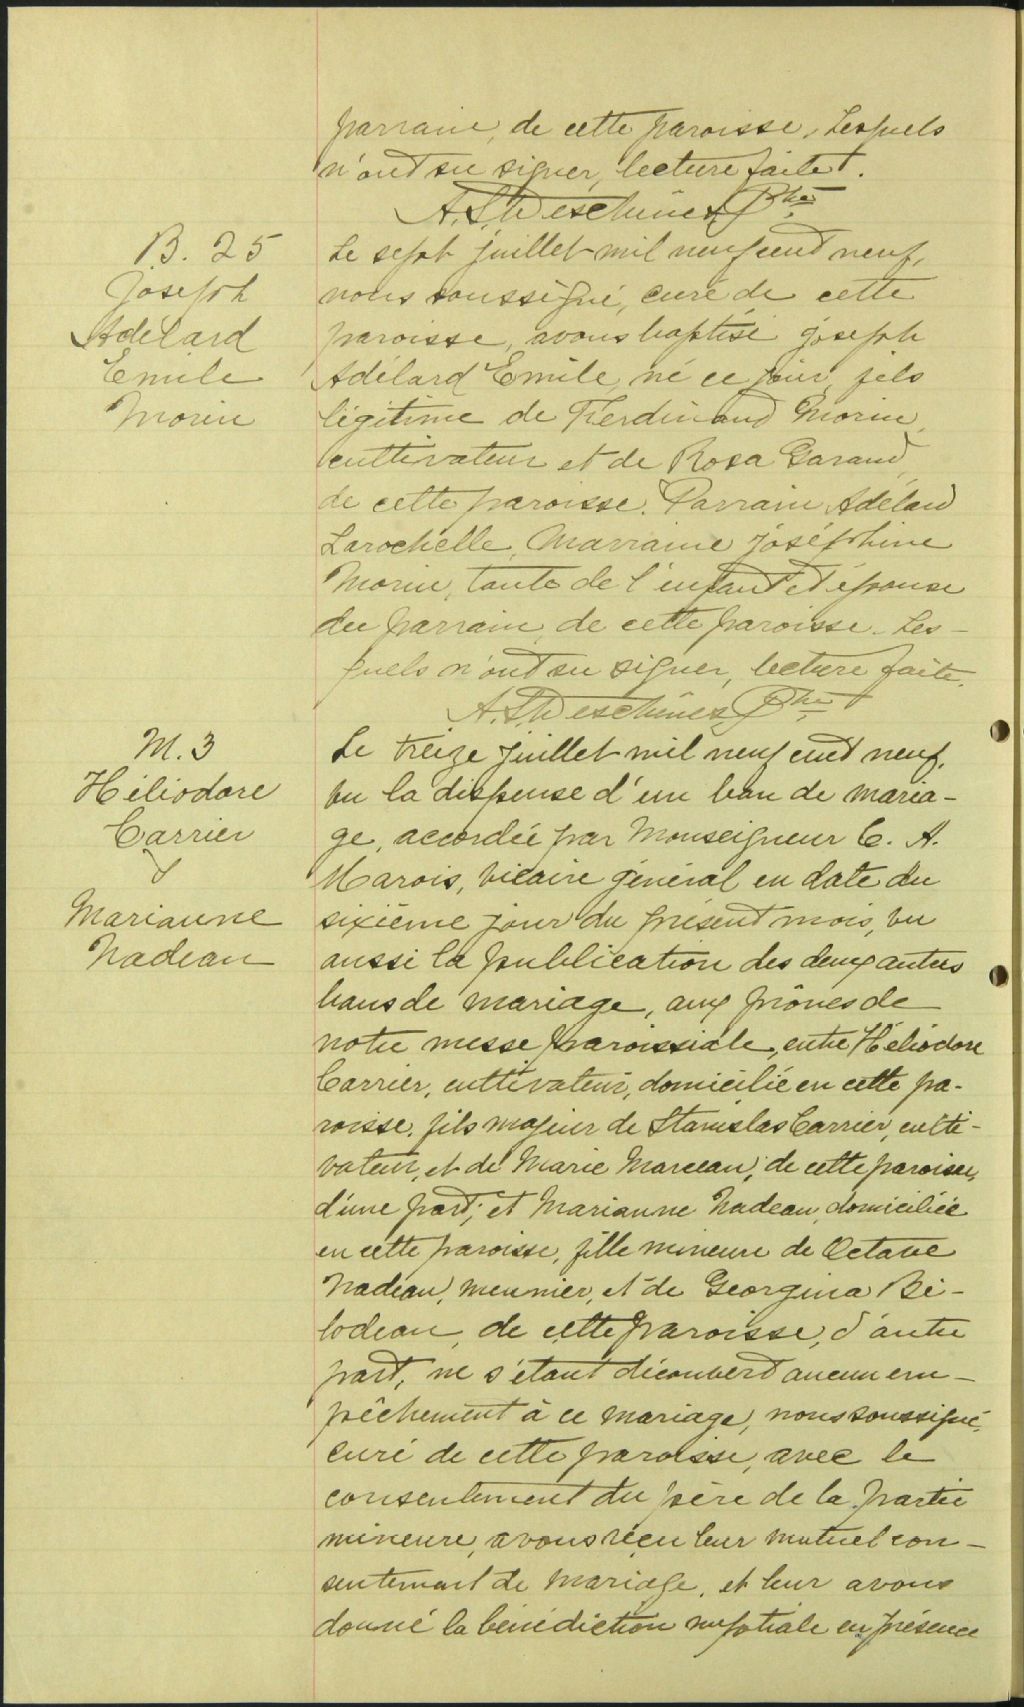 parrain, de cette paroisse, Lesquels
n'ont su signer, lecture faite.
A. S. Deschênes, Ptre
B. 25
Joseph
Adélard
Emile
Morin
Le sept juillet mil neuf cent neuf,
nous soussigné, curé de cette
paroisse, avons baptisé Joseph
Adélard Emile, né ce jour, fils
légitime de Ferdinand Morin,
cultivateur et de Rosa Garand,
de cette paroisse. Parrain Adélard
Larochelle, Marraine Joséphine
Morin, tante de l'enfant et épouse
du parrain, de cette paroisse. Les-
quels n'ont su signer, lecture faite.
A. S. Deschênes, Ptre
M. 3
Héliodore
Carrier
&
Marianne
Nadeau
Le treize juillet mil neuf cent neuf,
vu la dispense d'un ban de maria-
ge, accordée par Monseigneur C. A.
Marois, vicaire général en date du
sixième jour du présent mois, vu
aussi la publication des deux autres
bans de mariage, aux prônes de
notre messe paroissiale, entre Héliodore
Carrier, cultivateur, domicilié en cette pa-
roisse, fils majeur de Stanislas Carrier, culti-
vateur, et de Marie Marceau, de cette paroisse,
d'une part; et Marianne Nadeau, domiciliée
en cette paroisse, fille mineure de Octave
Nadeau, meunier, et de Georgina Bi-
lodeau, de cette paroisse, d'autre
part; ne s'étant découvert aucun em-
pêchement à ce mariage, nous soussigné,
curé de cette paroisse, avec le
consentement du père de la partie
mineure, avons reçu leur mutuel con-
sentement de mariage, et leur avons
donné la bénédiction nuptiale en présence